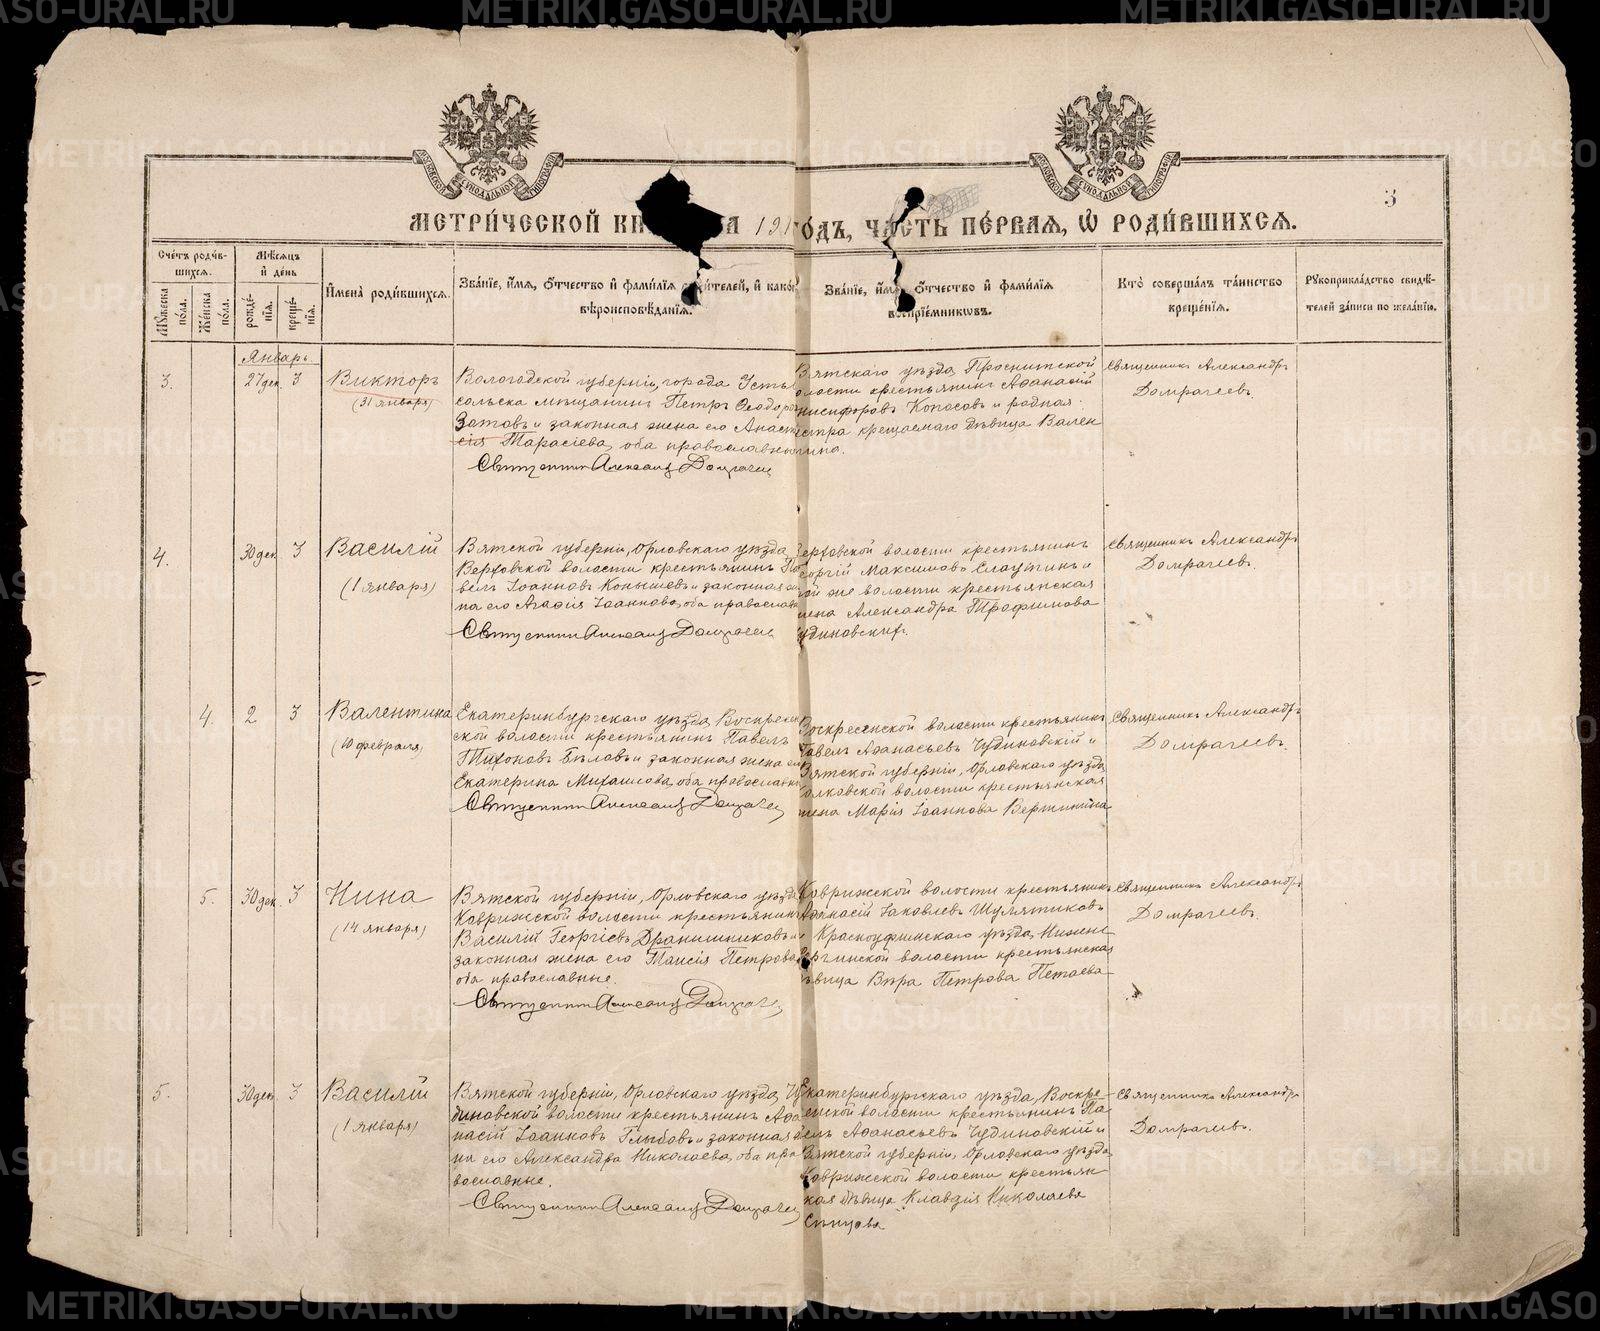 МЕТРИ́ЧЕСКОЙ КН А 191 ГОДЪ, ЧАСТЬ ПЕ́РВАЯ, Ѡ РОДИ́ВШИХСЯ.
3
Сче́тъ роди́в-
шихся.
Мꙋ́жеска по́ла.
Же́нска по́ла.
Мѣ́сяцъ
и де́нь
рожде́-
нїя.
креще́-
нїя.
И҆мена̀ роди́вшихся.
Зва́нїе, и҆́мя, ѻ҆́тчество и҆ фами́лїя роди́телей, и҆ како́гѡ
вѣроисповѣ́данїя.
Зва́нїе, и҆́мя, ѻ҆́тчество и҆ фами́лїя
воспрїе́мникѡвъ.
Кто̀ соверша́лъ та́инство
креще́нїя.
Рꙋкоприкла́дство свидѣ́-
телей за́писи по жела́нїю.
Январь.
3.
27 дек.
3
Викторъ
(31 января)
Вологодской губерніи, города Усть-
сольска мѣщанинъ Петръ Ѳеодоровъ
Затовъ и законная жена его Анаста-
сія Тарасіева, оба православные.
Священникъ Александръ Домрачевъ
Вятскаго уѣзда Проснитской
волости крестьянинъ Аѳанасій
Онисифоровъ Копосовъ и родная
сестра крещаемаго дѣвица Вален-
тина.
Священникъ Александръ
Домрачевъ.
4.
30 дек.
3
Василій
(1 января)
Вятской губерніи, Орловскаго уѣзда
Верховской волости крестьянинъ Па-
велъ Іоанновъ Конышевъ и законная же-
на его Агаѳія Іоаннова, оба православн
Священникъ Александръ Домрачевъ
Верховской волости крестьянинъ
Георгій Максимовъ Слаутинъ и
той же волости крестьянская
жена Александра Трофимова
Чудиновскихъ.
Священникъ Александръ
Домрачевъ.
4.
2
3
Валентина
(10 февраля)
Екатеринбургскаго уѣзда Воскресен-
ской волости крестьянинъ Павелъ
Тихоновъ Бѣловъ и законная жена его
Екатерина Михаилова, оба православные
Священникъ Александръ Домрачевъ
Воскресенской волости крестьянинъ
Павелъ Аѳанасьевъ Чудиновскій и
Вятской губерніи, Орловскаго уѣзда
волковской волости крестьянская
жена Марія Іоаннова Вершинина
Священникъ Александръ
Домрачевъ.
5.
30 дек.
3
Нина
(14 января)
Вятской губерніи, Орловскаго уѣзда
Коврижской волости крестьянинъ
Василій Георгіевъ Дранишниковъ и
законная жена его Таисія Петрова
оба православные.
Священникъ Александръ Домрачевъ
Коврижской волости крестьянинъ
Аѳанасій Іаковлевъ Шулятиковъ
и Красноуфимскаго уѣзда Нижне-
сергинской волости крестьянская
дѣвица Вѣра Петрова Петаева
Священникъ Александръ
Домрачевъ.
5.
30 дек.
3
Василій
(1 января)
Вятской губерніи, Орловскаго уѣзда, Чу-
диновской волости крестьянинъ Аѳа-
насій Іоанновъ Глыбовъ и законная же-
на его Александра Николаева, оба пра-
вославные.
Священникъ Александръ Домрачевъ
Екатеринбургскаго уѣзда, Воскре-
сенской волости крестьянинъ Па-
велъ Аѳанасьевъ Чудиновскій и
Вятской губерніи, Орловскаго уѣзда
Коврижской волости крестьян-
ская дѣвица Клавдія Николаева
Сѣнцова
Священникъ Александръ
Домрачевъ.
METRIKI.GASO-URAL.RU